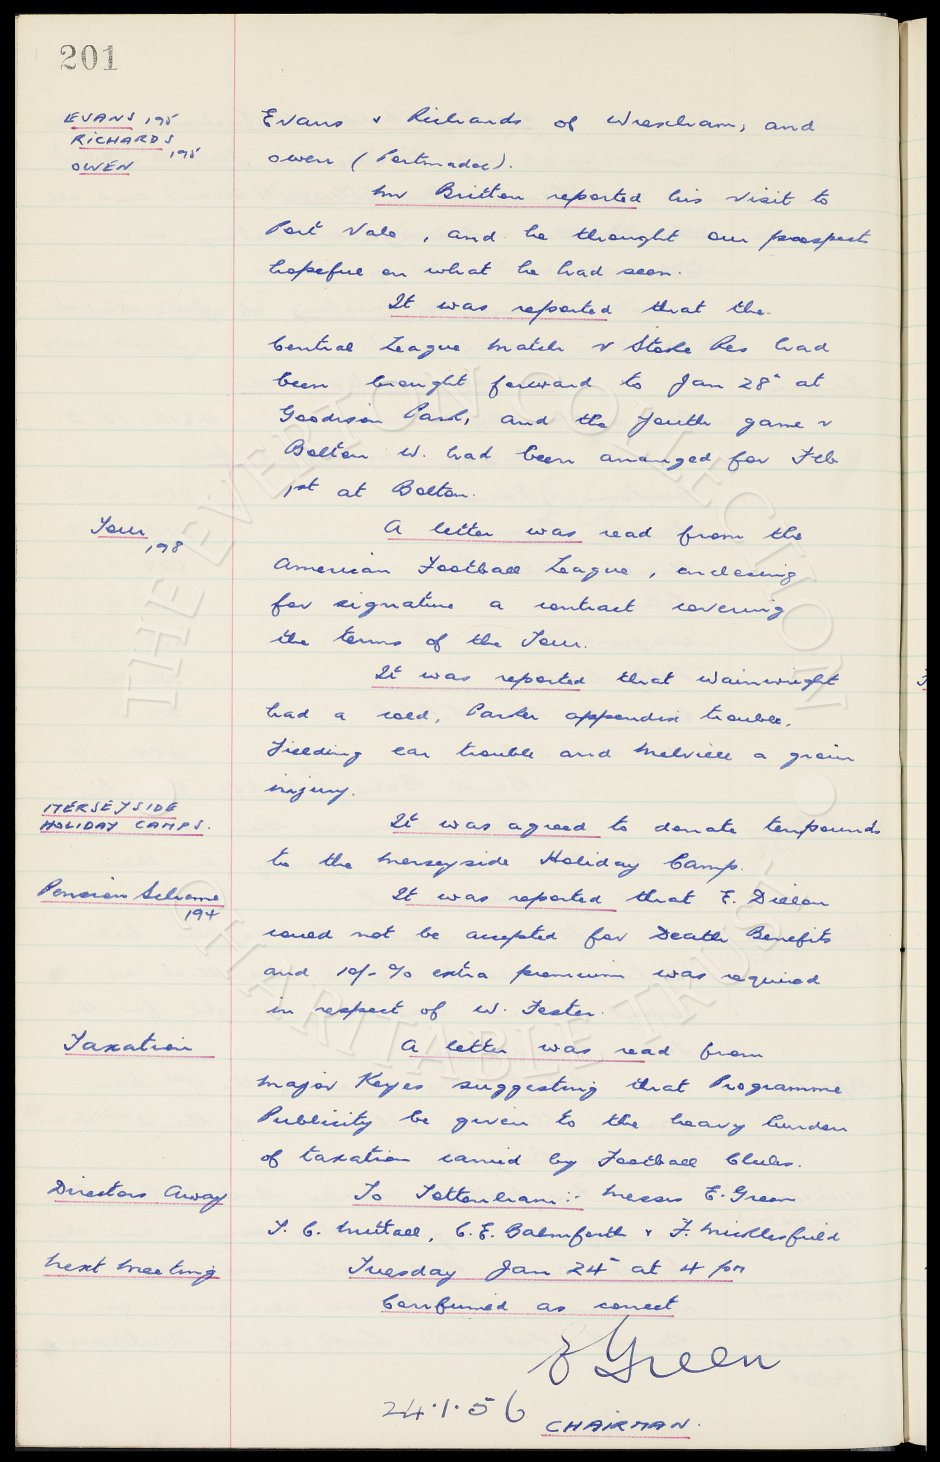 201
EVANS 195
RICHARDS 195
OWEN
Evans & Richards of Wrexham, and
Owen (Portmadoc).
Mr Britton reported his visit to
Port Vale, and he thought our prospects
hopeful on what he had seen.
It was reported that the
Central League match v Stoke Res had
been brought forward to Jan 28th at
Goodison Park, and the Youth game v
Bolton W. had been arranged for Feb
1st at Bolton.
Tour 198
A letter was read from the
American Football League, enclosing
for signature a contract covering
the terms of the Tour.
It was reported that Wainwright
had a cold, Parker appendix trouble,
Fielding ear trouble and Melville a groin
injury.
MERSEYSIDE
HOLIDAY CAMPS.
It was agreed to donate ten pounds
to the Merseyside Holiday Camp.
Pension Scheme
194
It was reported that E. Dillon
could not be accepted for Death Benefits
and 10/- % extra premium was required
in respect of W. Tester.
Taxation
A letter was read from
Major Keyes suggesting that Programme
Publicity be given to the heavy burden
of taxation carried by Football Clubs.
Directors Away
To Tottenham :- Messrs E. Green
T. C. Nuttall, C. E. Balmforth & F. Micklesfield
Next Meeting
Tuesday Jan 24th at 4 pm
Confirmed as correct
E Green
24.1.56
CHAIRMAN.
THE EVERTON COLLECTION
CHARITABLE TRUST